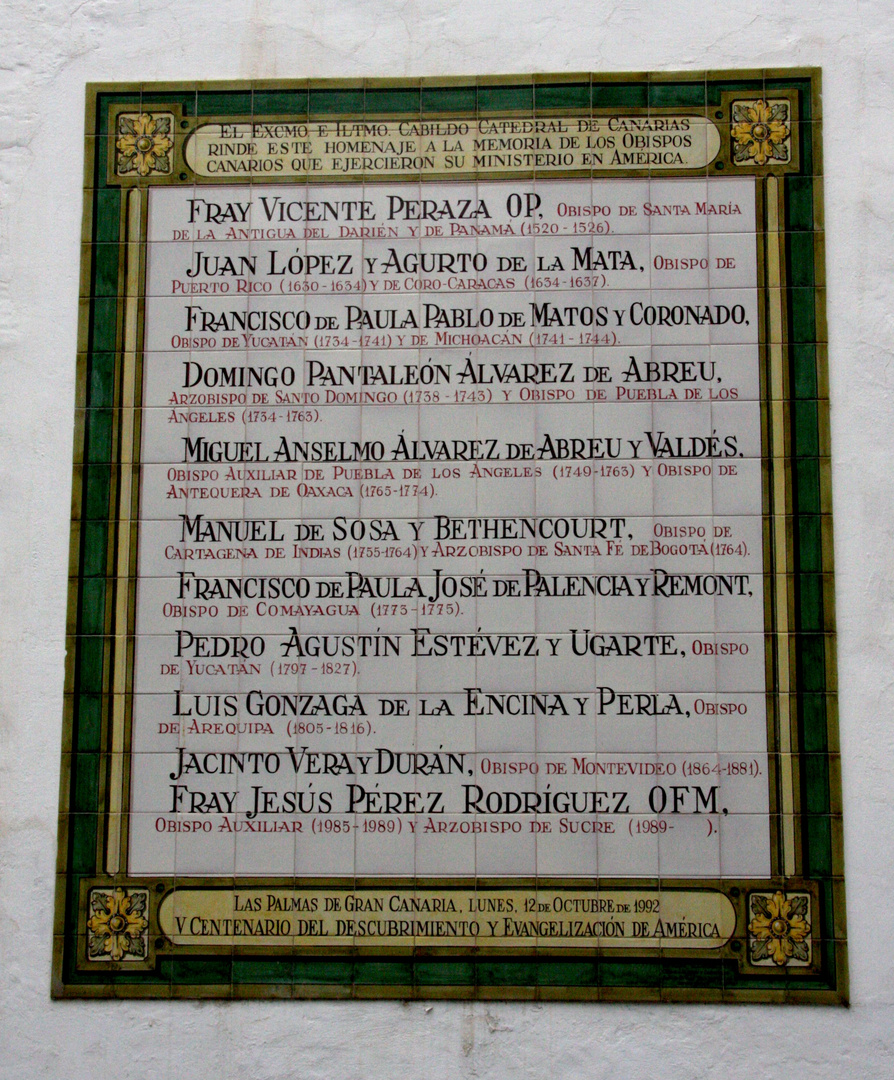 EL EXCMO. E ILTMO. CABILDO CATEDRAL DE CANARIAS
RINDE ESTE HOMENAJE A LA MEMORIA DE LOS OBISPOS
CANARIOS QUE EJERCIERON SU MINISTERIO EN AMÉRICA.
FRAY VICENTE PERAZA OP, OBISPO DE SANTA MARÍA
DE LA ANTIGUA DEL DARIÉN Y DE PANAMÁ (1520-1526).
JUAN LÓPEZ Y AGURTO DE LA MATA, OBISPO DE
PUERTO RICO (1630-1634) Y DE CORO-CARACAS (1634-1637).
FRANCISCO DE PAULA PABLO DE MATOS Y CORONADO,
OBISPO DE YUCATÁN (1734-1741) Y DE MICHOACÁN (1741-1744).
DOMINGO PANTALEÓN ÁLVAREZ DE ABREU,
ARZOBISPO DE SANTO DOMINGO (1738-1743) Y OBISPO DE PUEBLA DE LOS
ÁNGELES (1734-1763).
MIGUEL ANSELMO ÁLVAREZ DE ABREU Y VALDÉS,
OBISPO AUXILIAR DE PUEBLA DE LOS ÁNGELES (1749-1763) Y OBISPO DE
ANTEQUERA DE OAXACA (1765-1774).
MANUEL DE SOSA Y BETHENCOURT, OBISPO DE
CARTAGENA DE INDIAS (1755-1764) Y ARZOBISPO DE SANTA FÉ DE BOGOTÁ (1764).
FRANCISCO DE PAULA JOSÉ DE PALENCIA Y REMONT,
OBISPO DE COMAYAGUA (1773-1775).
PEDRO AGUSTÍN ESTÉVEZ Y UGARTE, OBISPO
DE YUCATÁN (1797-1827).
LUIS GONZAGA DE LA ENCINA Y PERLA, OBISPO
DE AREQUIPA (1805-1816).
JACINTO VERA Y DURÁN, OBISPO DE MONTEVIDEO (1864-1881).
FRAY JESÚS PÉREZ RODRÍGUEZ OFM,
OBISPO AUXILIAR (1985-1989) Y ARZOBISPO DE SUCRE (1989- ).
LAS PALMAS DE GRAN CANARIA, LUNES, 12 DE OCTUBRE DE 1992
V CENTENARIO DEL DESCUBRIMIENTO Y EVANGELIZACIÓN DE AMÉRICA